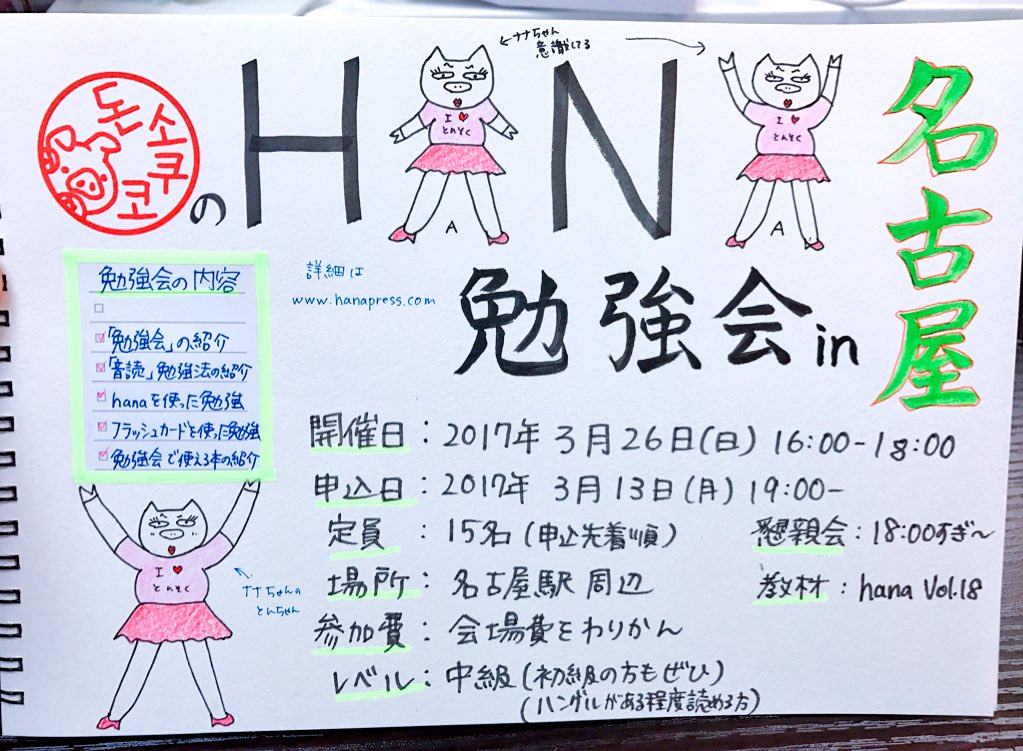 돈소쿠코
の HANA
←ナナちゃん
意識してる→
I ♥
とんそく
I ♥
とんそく
名古屋
勉強会 in
詳細は
www.hanapress.com
勉強会の内容
「勉強会」の紹介
「音読」勉強法の紹介
hanaを使った勉強
フラッシュカードを使った勉強
勉強会で使える本の紹介
I ♥
とんそく
ナナちゃんの
とんちゃん
開催日：2017年 3月26日(日) 16:00-18:00
申込日：2017年 3月13日(月) 19:00-
定員：15名(申込先着順)
懇親会：18:00すぎ〜
場所：名古屋駅周辺
教材：hana Vol.18
参加費：会場費をわりかん
レベル：中級(初級の方もぜひ)
(ハングルがある程度読める方)